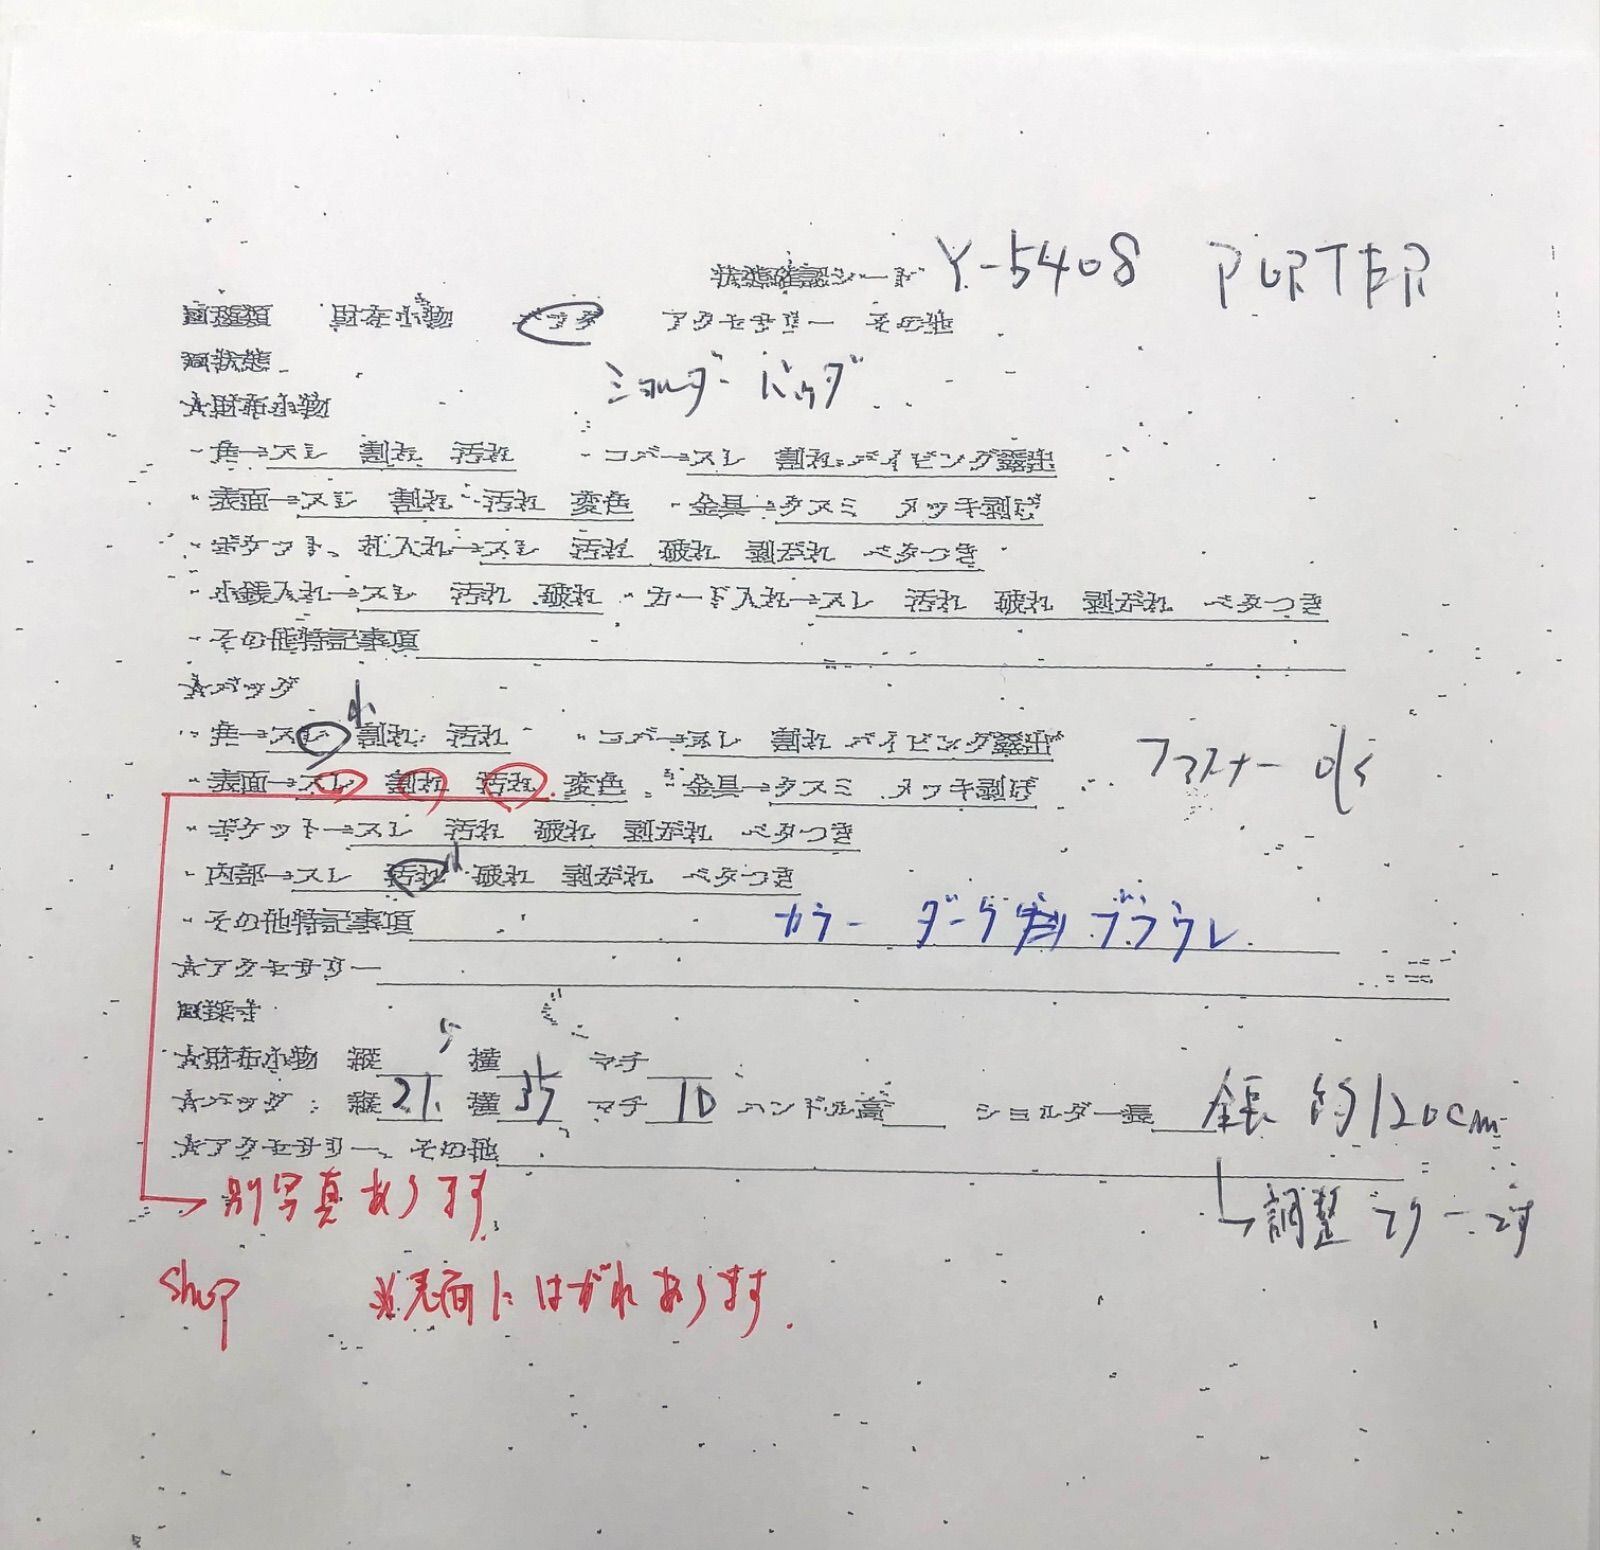 状態確認シート Y-5408 PORTER
■種類 財布小物 バッグ アクセサリー その他
■状態
ショルダーバッグ
☆財布小物
・角→スレ 割れ 汚れ ・コバ→スレ 割れ パイピング露出
・表面→スレ 割れ 汚れ 変色 ・金具→クスミ メッキ剥げ
・ポケット、札入れ→スレ 汚れ 破れ 剥がれ ベタつき
・小銭入れ→スレ 汚れ 破れ ・カード入れ→スレ 汚れ 破れ 剥がれ ベタつき
・その他特記事項
☆バッグ
小
・角→スレ 割れ 汚れ ・コバ→スレ 割れ パイピング露出
・表面→スレ 割れ 汚れ 変色 ・金具→クスミ メッキ剥げ ファスナー ok
・ポケット→スレ 汚れ 破れ 剥がれ ベタつき
・内部→スレ 汚れ 小 破れ 剥がれ ベタつき
・その他特記事項 カラー ダーク ブラウン
☆アクセサリー
■採寸
☆財布小物 縦 横 マチ
☆バッグ:縦 21 横 35 マチ 10 ハンドル高 ショルダー長 全長 約120cm
☆アクセサリー、その他
→別写真あります
└→調整フリーです
Shop ※表面にはがれあります.